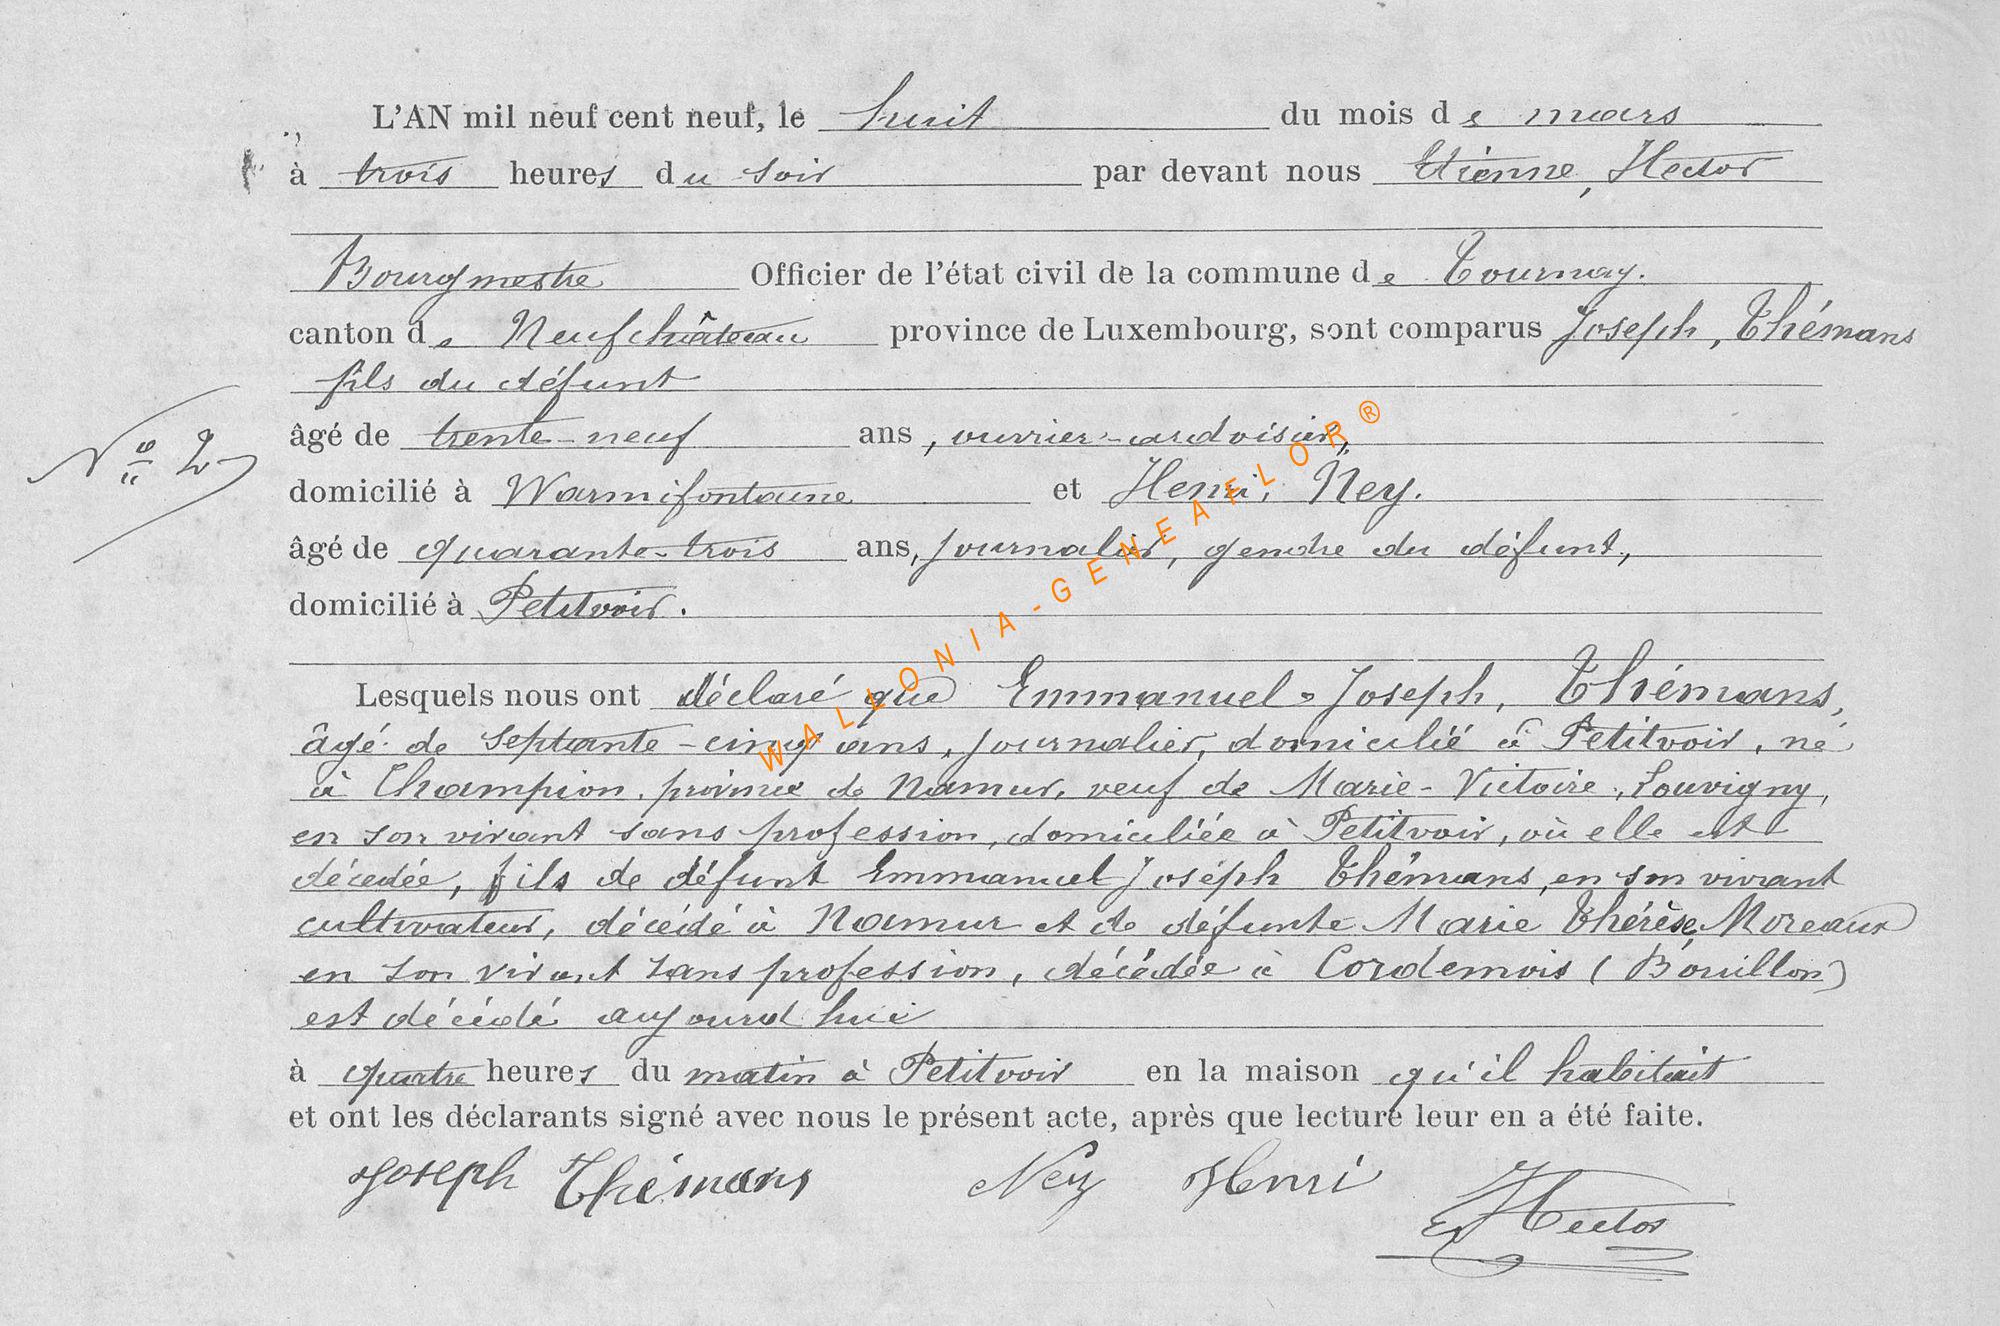 L'AN mil neuf cent neuf, le huit du mois de mars
à trois heures du soir par devant nous Etienne, Hector
Bourgmestre Officier de l'état civil de la commune de Tournay.
canton de Neufchâteau province de Luxembourg, sont comparus Joseph, Thémans
fils du défunt
âgé de trente-neuf ans, ouvrier-ardoisier,
N° 2
domicilié à Warmifontaine et Henri, Ney.
âgé de quarante-trois ans, journalier, gendre du défunt,
domicilié à Petitvoir.
WALLONIA-GENEAFLOR®
Lesquels nous ont déclaré que Emmanuel-Joseph, Thémans,
âgé de septante-cinq ans, journalier, domicilié à Petitvoir, né
à Champion, province de Namur, veuf de Marie-Victoire, Louvigny,
en son vivant sans profession, domiciliée à Petitvoir, où elle est
décédée, fils de défunt Emmanuel Joséph Thémans, en son vivant
cultivateur, décédé à Namur et de défunte Marie Thérèse, Moreaux
en son vivant sans profession, décédée à Cordemois (Bouillon)
est décédé aujourd'hui
à quatre heures du matin à Petitvoir en la maison qu'il habitait
et ont les déclarants signé avec nous le présent acte, après que lecture leur en a été faite.
Joseph Thémans Ney Henri E Hector